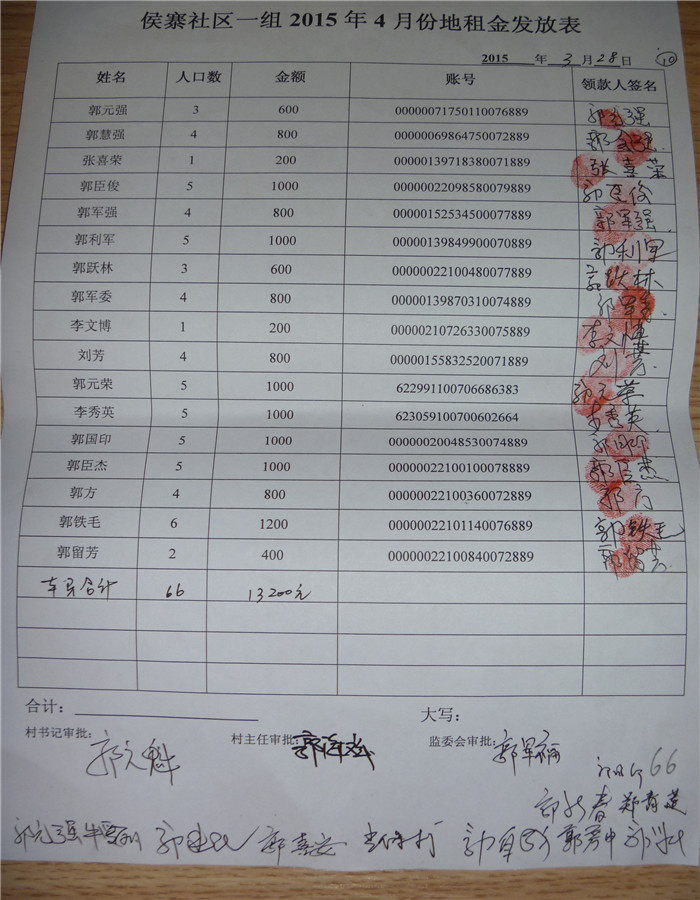 侯寨社区一组 2015 年 4 月份地租金发放表
2015 年 3 月 28 日 10
姓名 人口数 金额 账号 领款人签名
郭元强 3 600 00000071750110076889 郭元强
郭慧强 4 800 00000069864750072889
张喜荣 1 200 00000139718380071889 张喜荣
郭臣俊 5 1000 00000022098580079889 郭臣俊
郭军强 4 800 00000152534500077889 郭军强
郭利军 5 1000 00000139849900070889 郭利军
郭跃林 3 600 00000022100480077889
郭军委 4 800 00000139870310074889
李文博 1 200 00000210726330075889 李文博
刘芳 4 800 00000155832520071889 刘芳
郭元荣 5 1000 622991100706686383 郭元荣
李秀英 5 1000 623059100700602664 李秀英
郭国印 5 1000 00000020048530074889
郭臣杰 5 1000 00000022100100078889 郭臣杰
郭方 4 800 00000022100360072889 郭方
郭铁毛 6 1200 00000022101140076889 郭铁毛
郭留芳 2 400 00000022100840072889 郭留芳
本页合计 66 13200元
合计： 大写：
村书记审批： 村主任审批： 监委会审批：
66